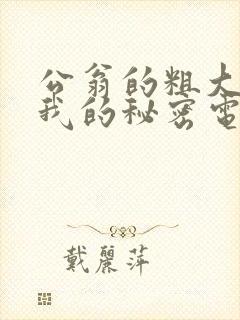 公翁的粗大
我的秘密電
戴麗萍